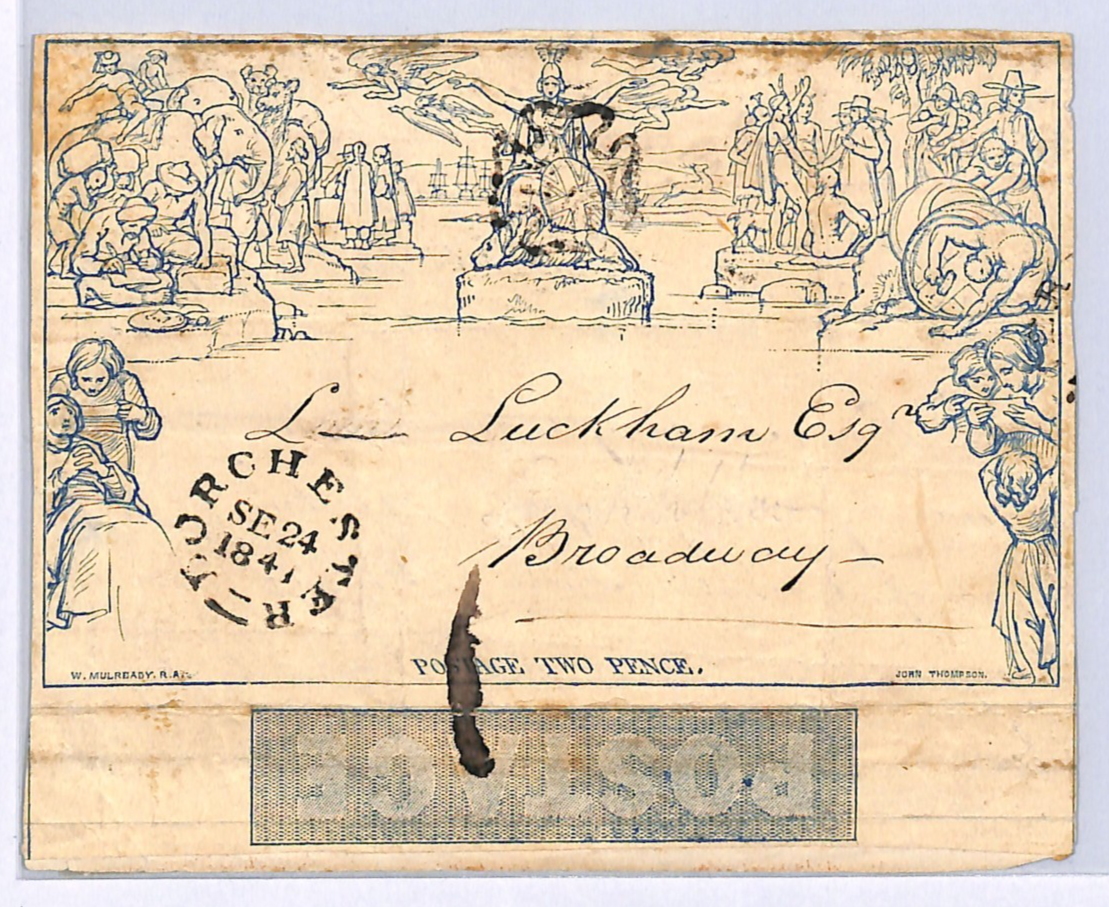 L— Luckham Esqr
Broadway —
DORCHESTER
SE 24
1841
POSTAGE TWO PENCE.
W. MULREADY. R.A.
JOHN THOMPSON.
POSTAGE